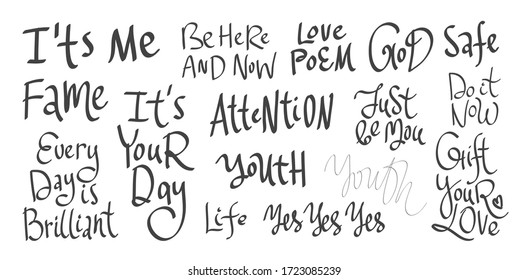 I'ts Me
Be Here
And Now
Love
Poem
God
Safe
Fame
It's
Your
Day
Attention
Just
be you
Do it
Now
Every
Day is
Brilliant
Youth
Youth
Gift
Your
Love
Life
Yes Yes Yes
shutterstock.com · 1723085239